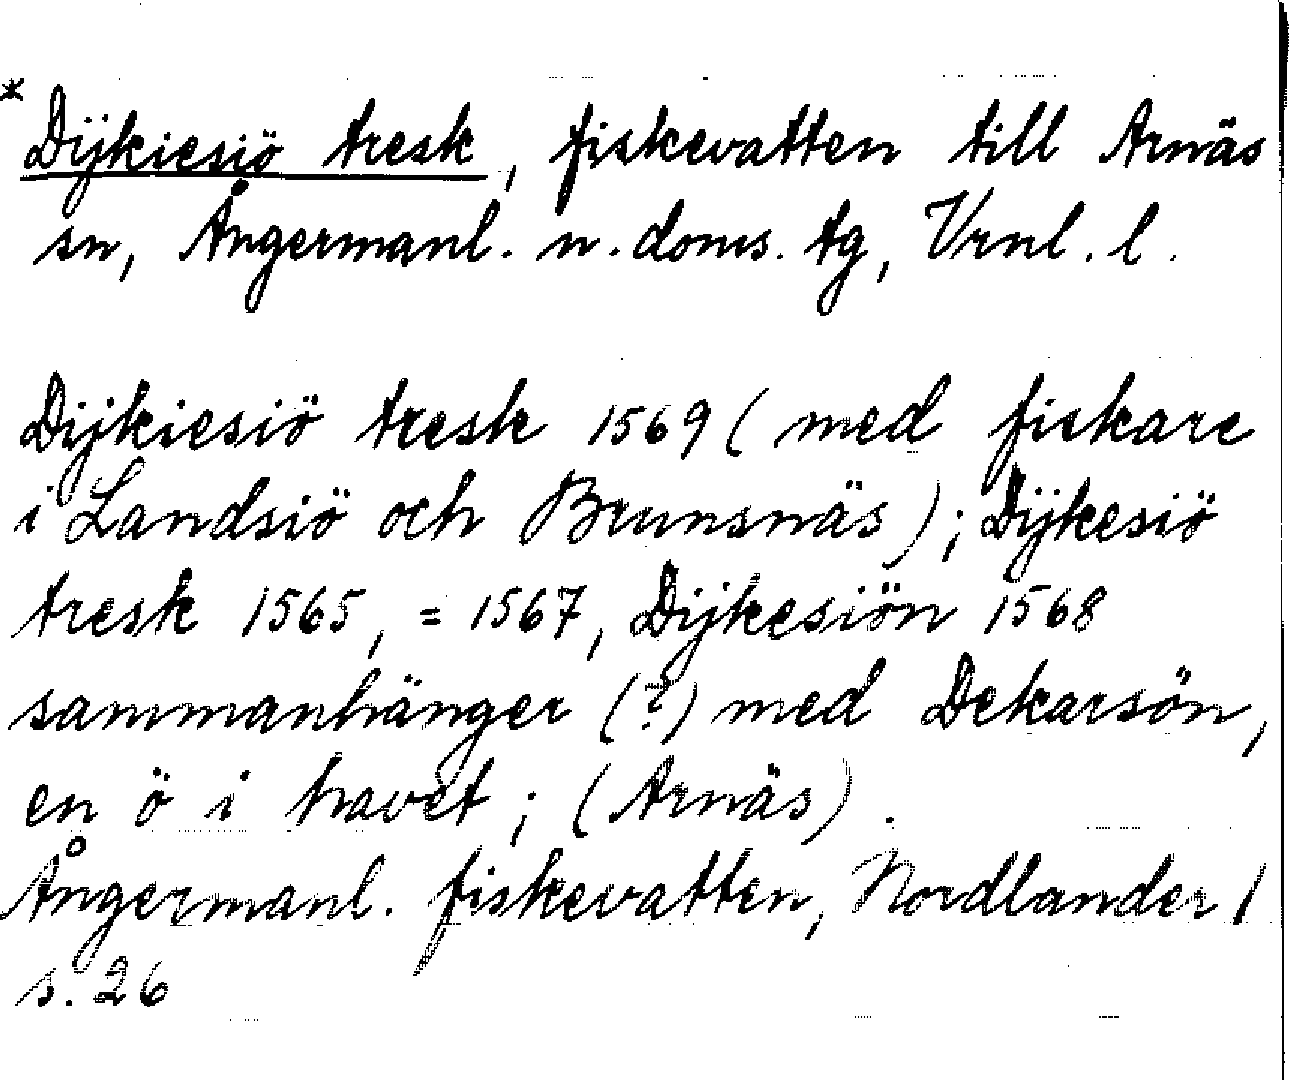 * Dijkiesiö tresk, fiskevatten till Arnäs
sn, Ångermanl. n. doms. tg, Vrnl. l.
Dijkiesiö tresk 1569 (med fiskare
i Landsiö och Brunsnäs); Dijkesiö
tresk 1565, = 1567, Dijkesiön 1568
sammanhänger (?) med Dekarsön,
en ö i havet; (Arnäs).
Ångermanl. fiskevatten, Nordlander 1
s. 26